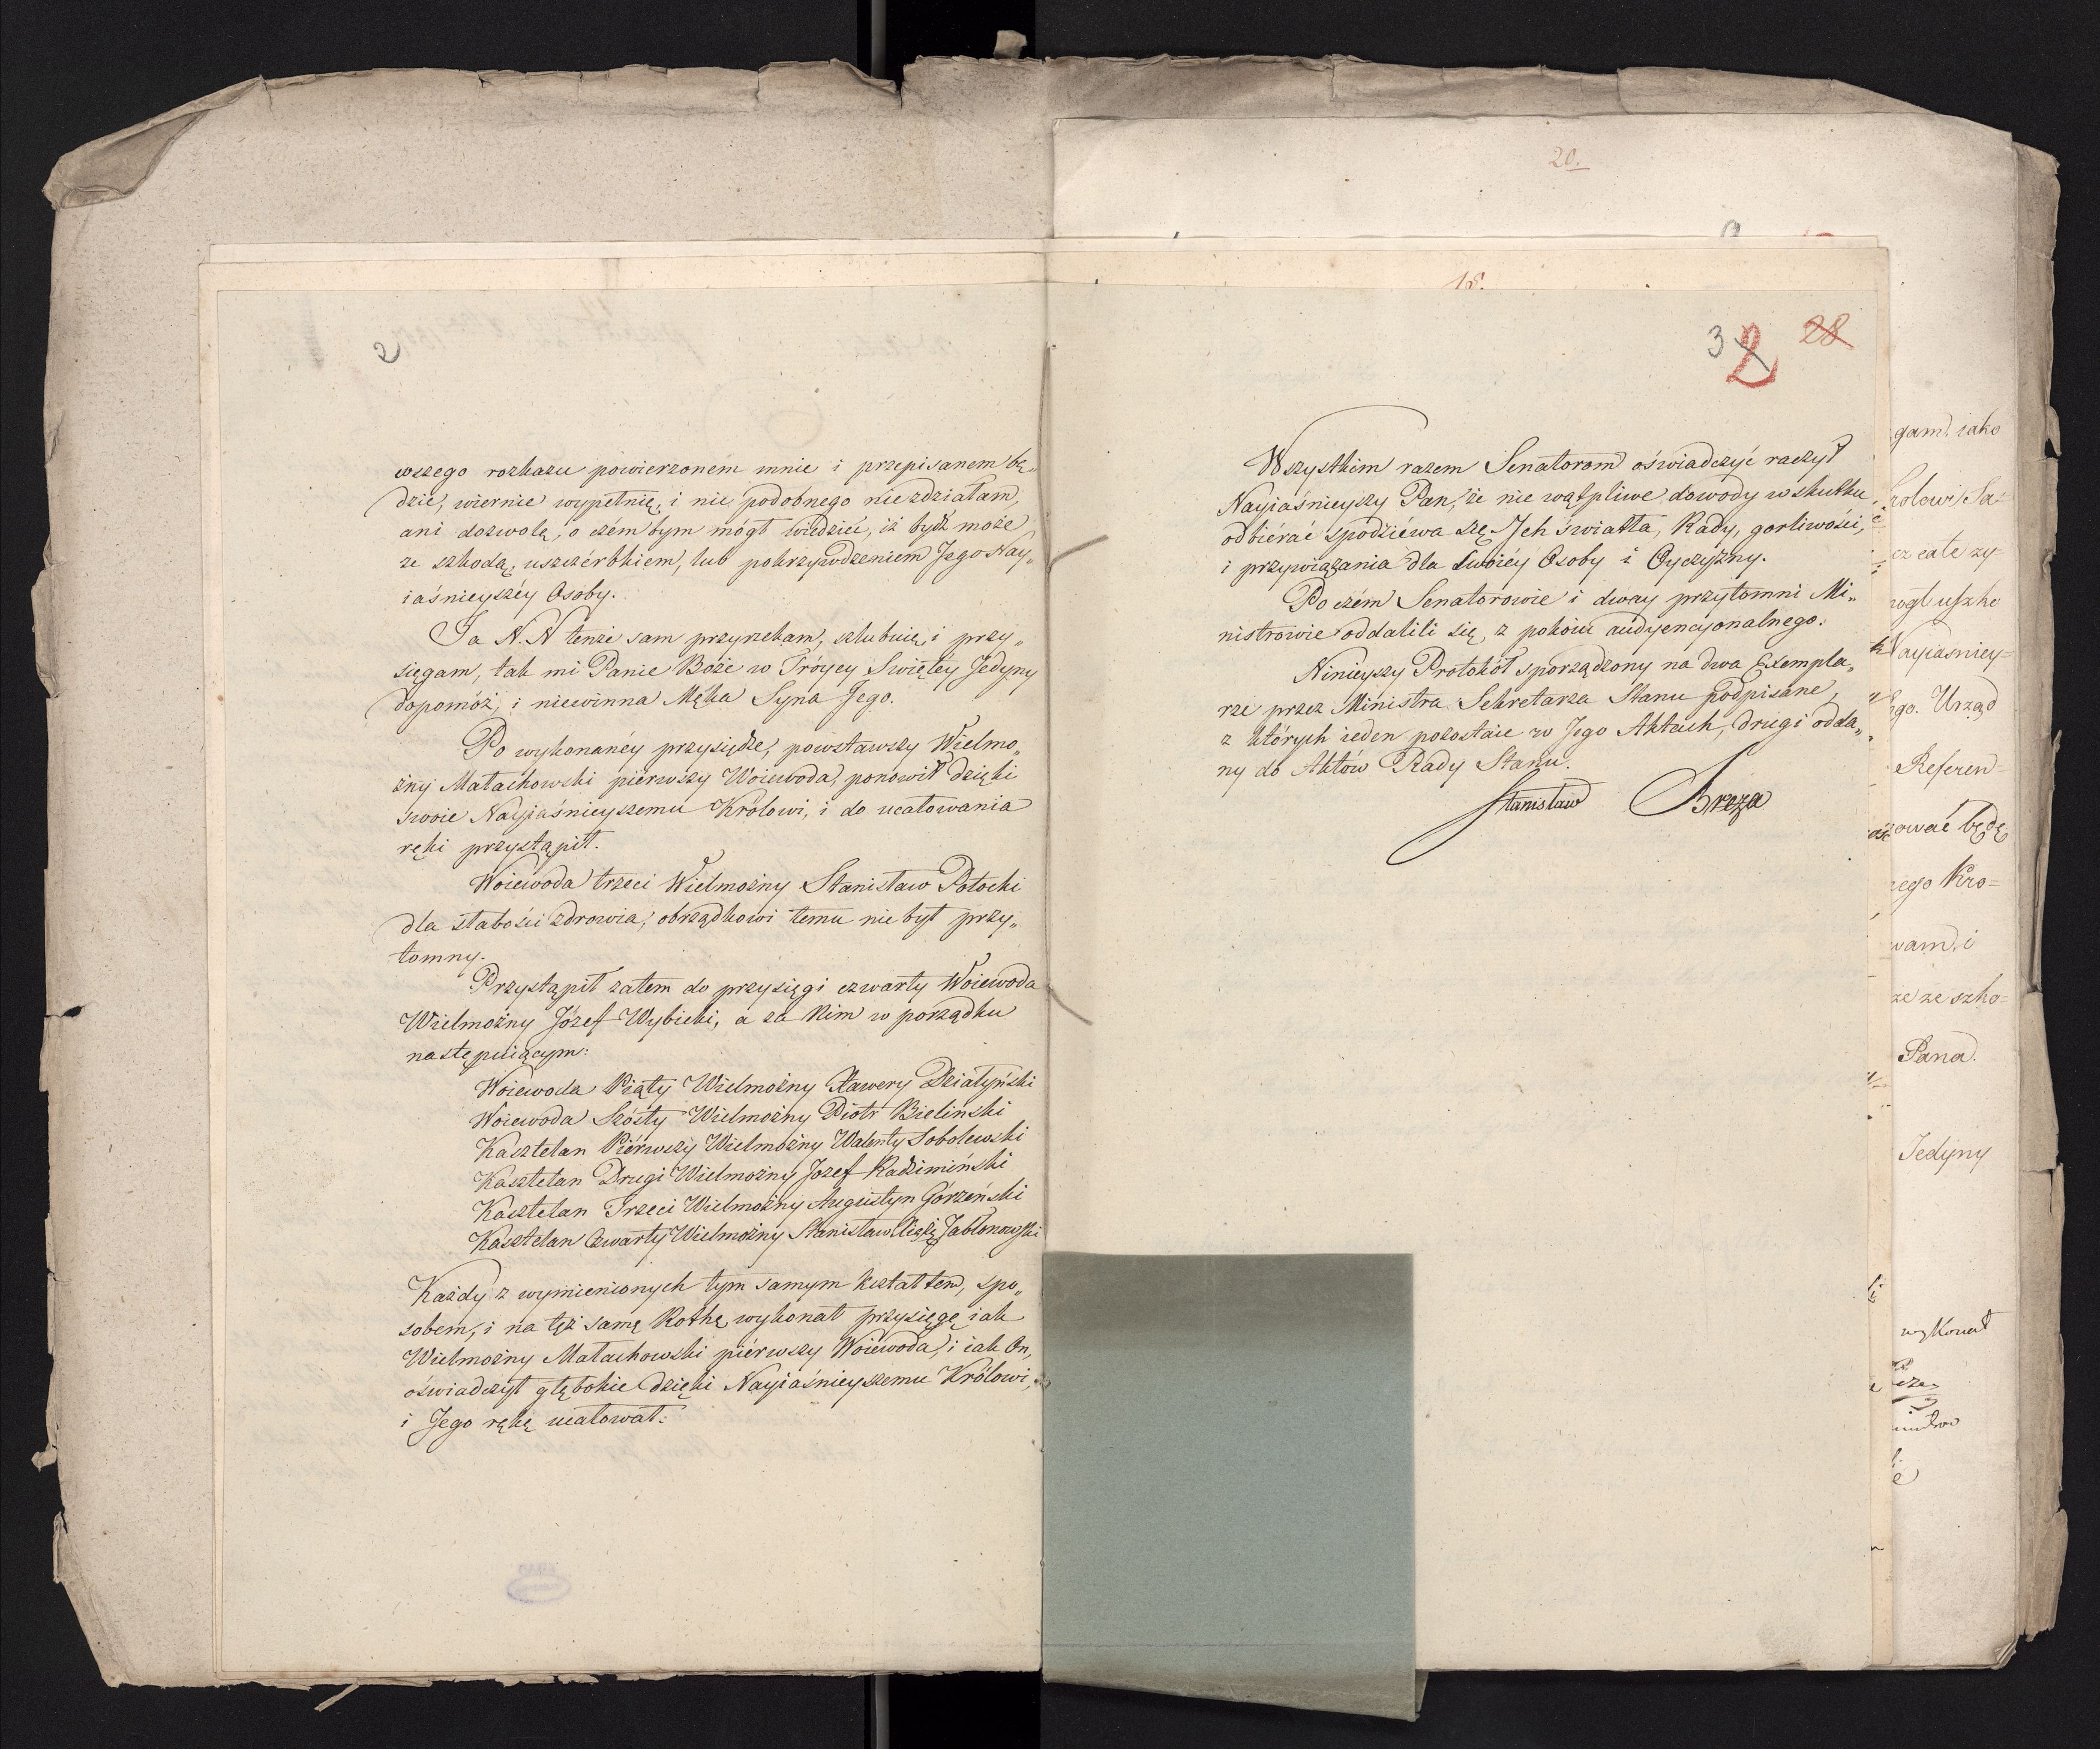 2
wszego rozkazu powierzoném mnie i przepisanem bę„
dzie, wiernie wypełnię, i nic podobnego niezdziałam,
ani dozwolę, o czém bym mógł wiedzieć, iż bydź może
ze szkodą, uszczérbkiem, lub pokrzywdzeniem Jego Nay„
iaśnieyszéy Osoby.
Ja N.N tenże sam przyrzekam, szlubuię, i przy„
sięgam, tak mi Panie Boże w Tróycy Swiętey Jedyny
dopomóż, i niewinna Męka Syna Jego.
Po wykonanéy przysiędze, powstawszy Wielmo„
żny Małachowski piérwszy Woiewoda, ponowił dzięki
swoie Nayiaśnieyszemu Królowi, i do ucałowania
ręki przystąpił.
Woiewoda trzeci Wielmożny Stanisław Potocki
dla słabości zdrowia, obrządkowi temu nie był przy„
tomny.
Przystąpił zatem do przysięgi czwarty Woiewoda
Wielmożny Józef Wybicki, a za Nim w porządku
następuiącym:
Woiewoda Piąty Wielmożny Xawery Działyński
Woiewoda Szósty Wielmożny Piotr Bielinski
Kasztelan Piérwszy Wielmożny Walenty Sobolewski
Kasztelan Drugi Wielmożny Jozef Radzimiński
Kasztelan Trzeci Wielmożny Augustyn Górzeński
Kasztelan Czwarty Wielmożny Stanisław Xiążę Jabłonowski
Każdy z wymienionych tym samym kształtem, spo„
sobem, i na tęż samę Rothę wykonał przysięgę iak
Wielmożny Małachowski piérwszy Woiewoda, i iak On,
oświadczył głębokie dzięki Nayiaśnieyszemu Królowi,
i Jego rękę ucałował.
20.
18.
3 2 28
Wszystkim razem Senatorom oświadczyć raczył
Nayiaśnieyszy Pan, że nie wątpliwe dowody w skutku
odbiérać spodziéwa się Jch światła, Rady, gorliwości,
i przywiązania dla Swoiéy Osoby i Oyczyzny.
Po czém Senatorowie i dway przytomni Mi„
nistrowie oddalili się z pokoiu audyencyonalnego.
Ninieyszy Protokół sporządzony na dwa Exempla„
rze przez Ministra Sekretarza Stanu podpisane,
z których ieden pozostaie w Jego Aktach, drugi odda„
ny do Aktów Rady Stanu.
Stanisław Breza
gam, iako
rolowi Sa=
cz całe zy=
mogł uszko
Nayiasniey=
go. Urząd
Referen=
zować będę
ego Kro=
wam, i
że ze szko=
Pana.
Jedyny
wykonał